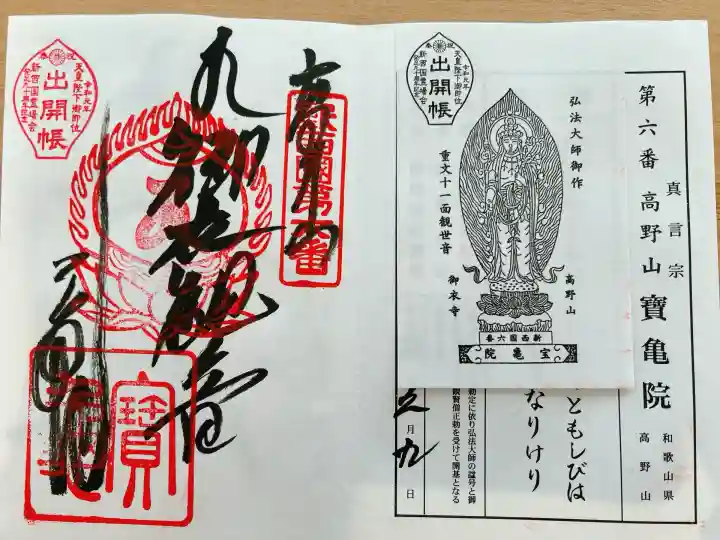 真言宗
第六番 高野山 寶亀院
和歌山県
高野山
ともしびは
なりけり
勅定に依り弘法大師の諡号と御
観賢僧正勅を受けて開基となる
月 九 日
奉祝
令和元年
天皇陛下御即位
出開帳
新西国霊場会
弘法大師御作
重文十一面観世音
高野山
御衣寺
新西國六番
宝亀院
奉祝
令和元年
天皇陛下御即位
出開帳
新西国霊場会
新西國第六番
高野山
九
観音
寶